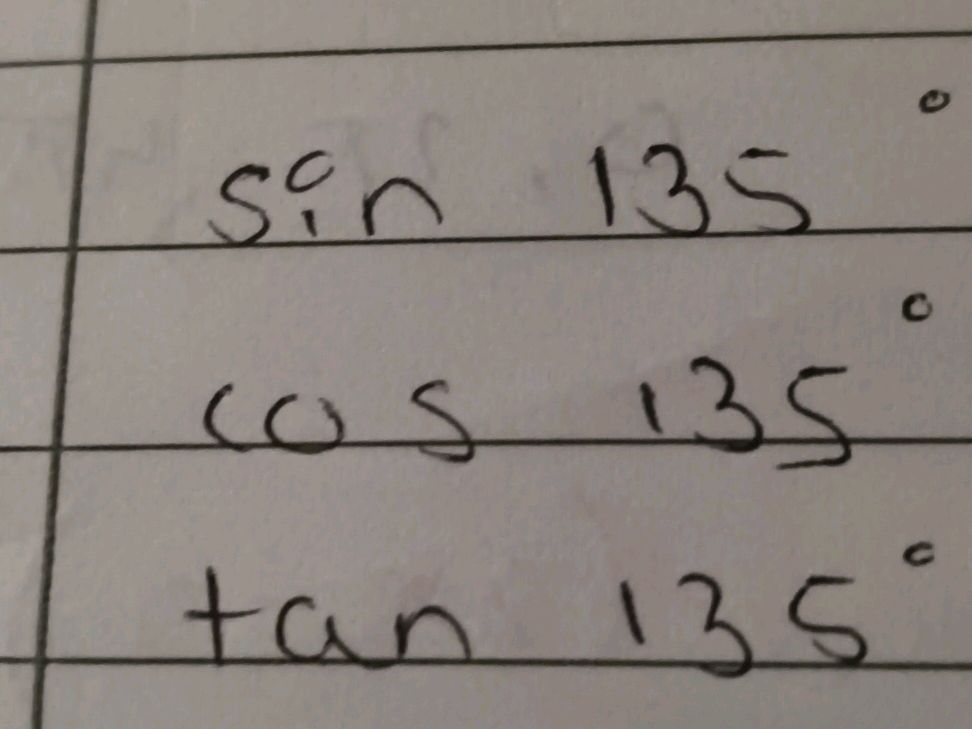 sin 135°
cos 135°
tan 135°